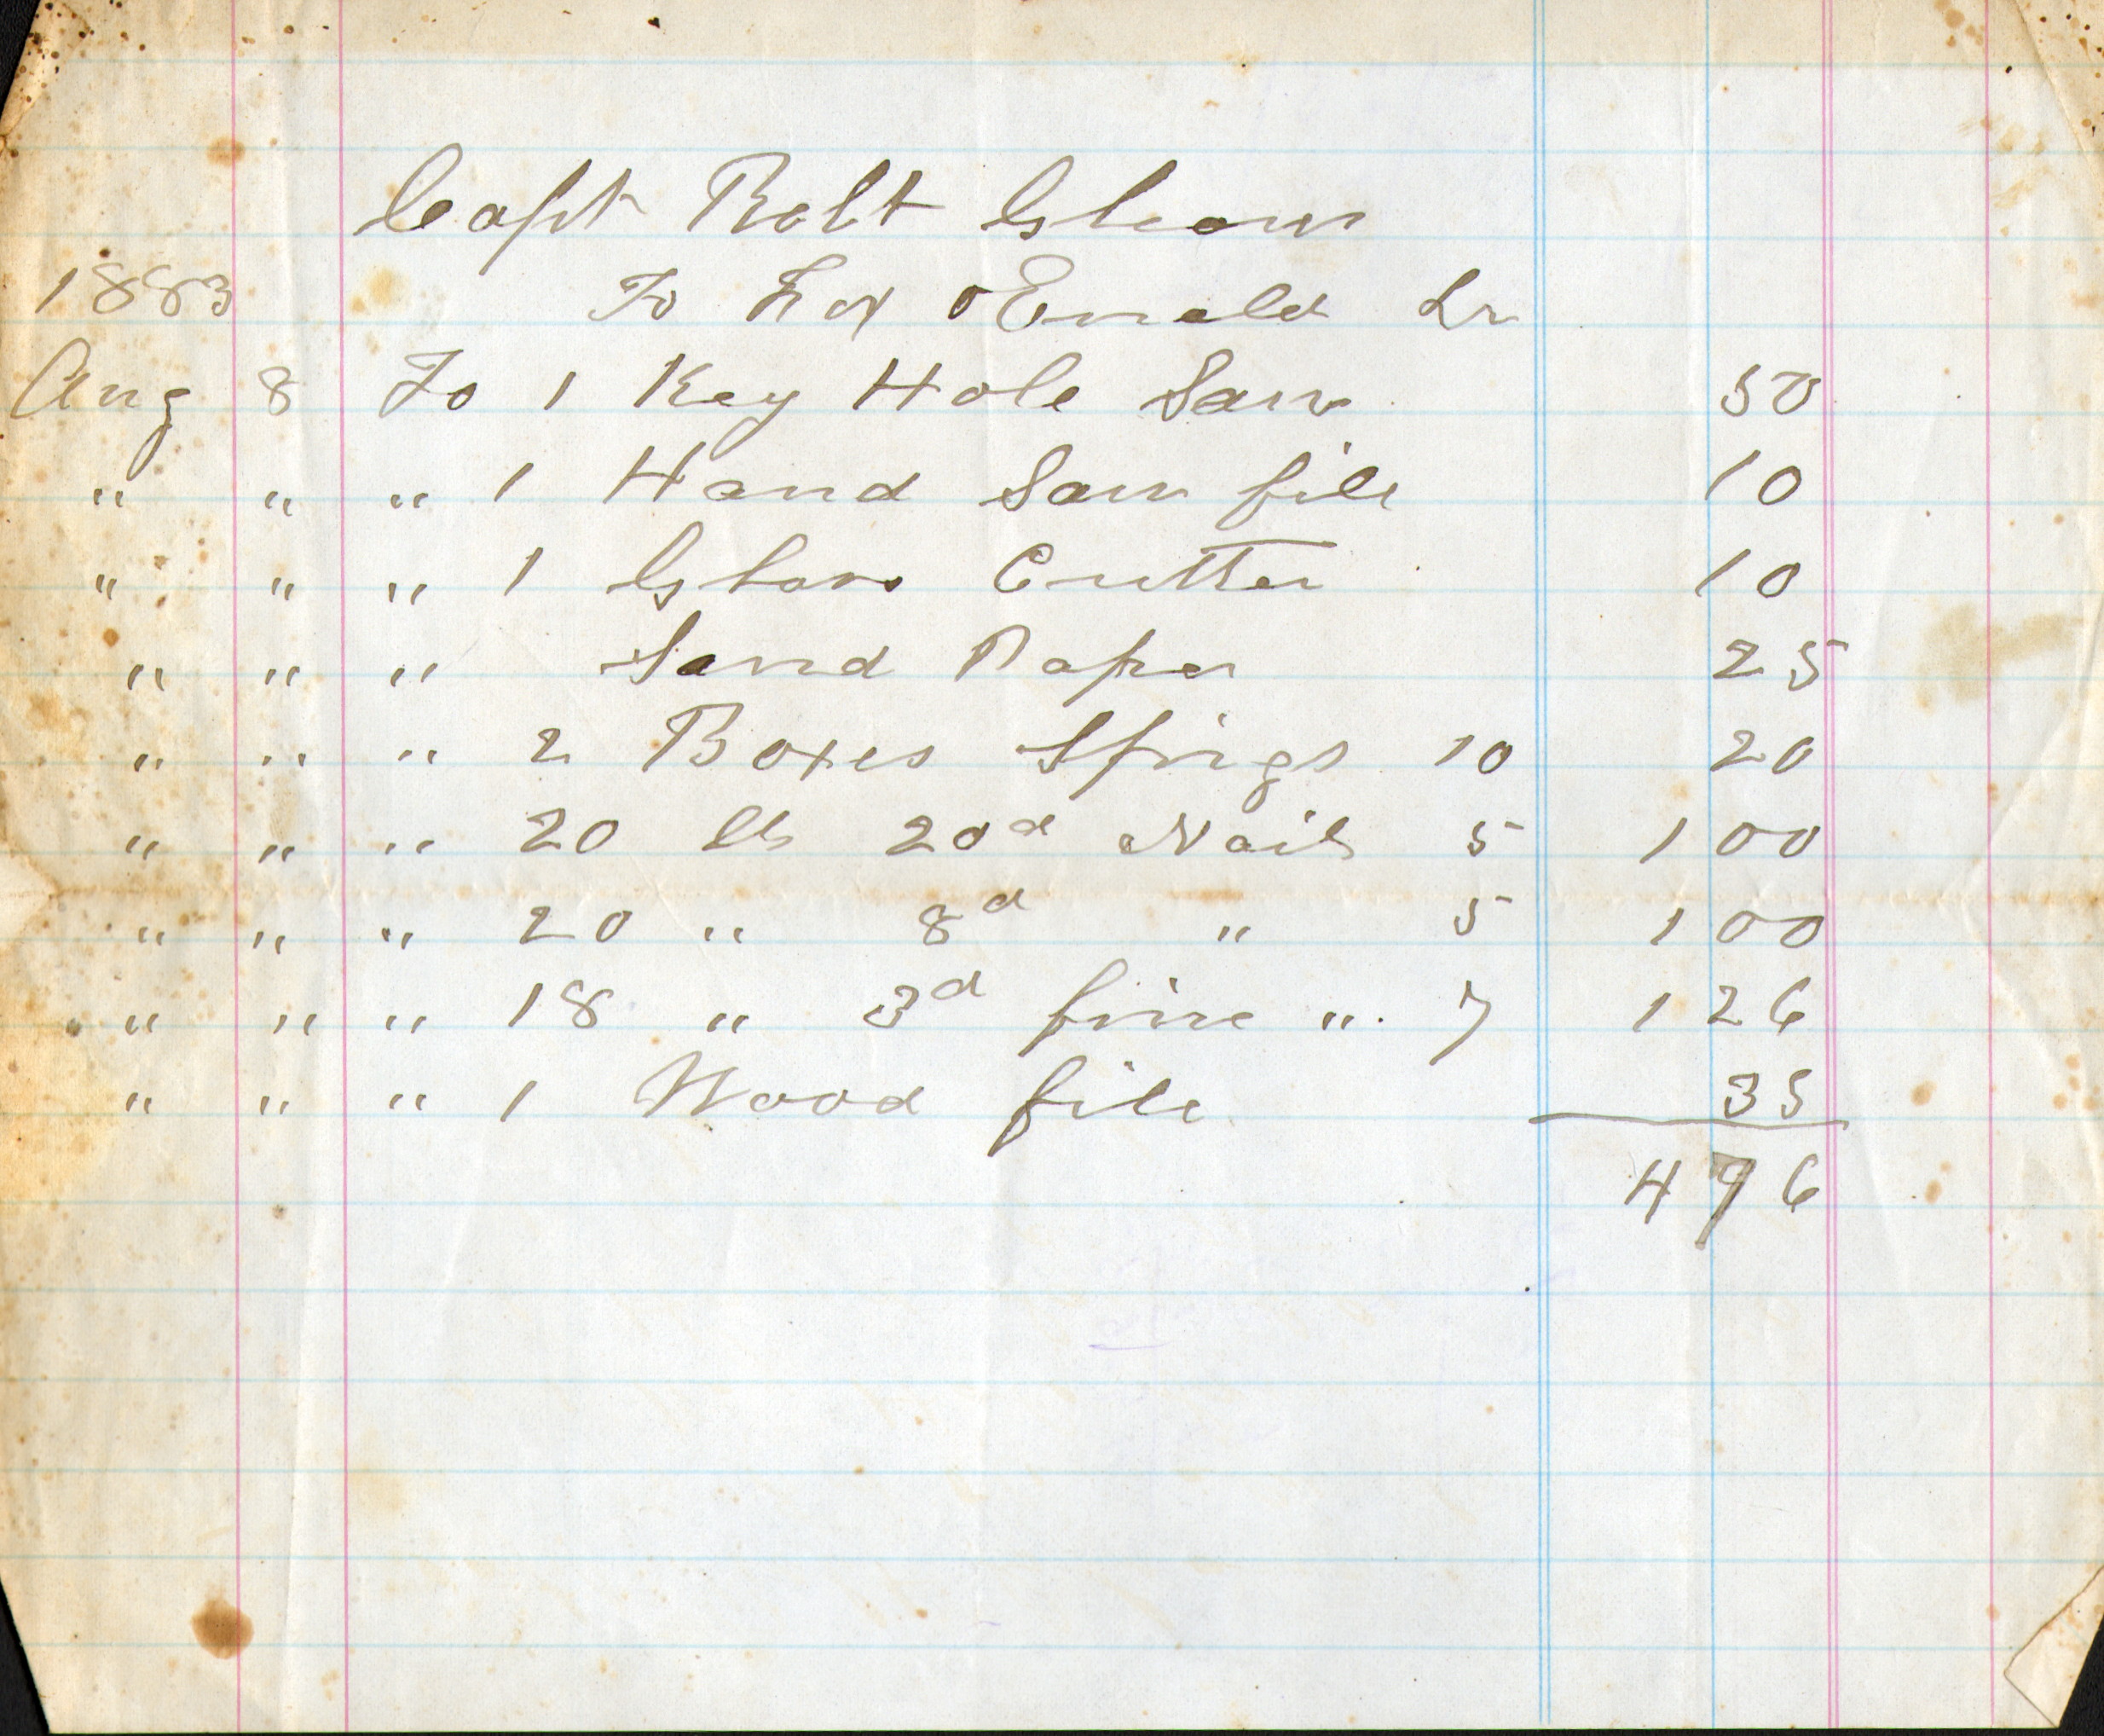 Capt Robt
1883 To Dr
Aug 8 To 1 Key Hole Saw 50
" " " 1 Hand Saw file 10
" " " 1 Glass Cutter 10
" " " Sand Paper 25
" " " 2 Boxes Sprigs 10 20
" " " 20 lb 20d Nails 5 1 00
" " " 20 " 8d " 5 1 00
" " " 18 " 3d fine " 7 1 26
" " " 1 Wood file 35
4 76